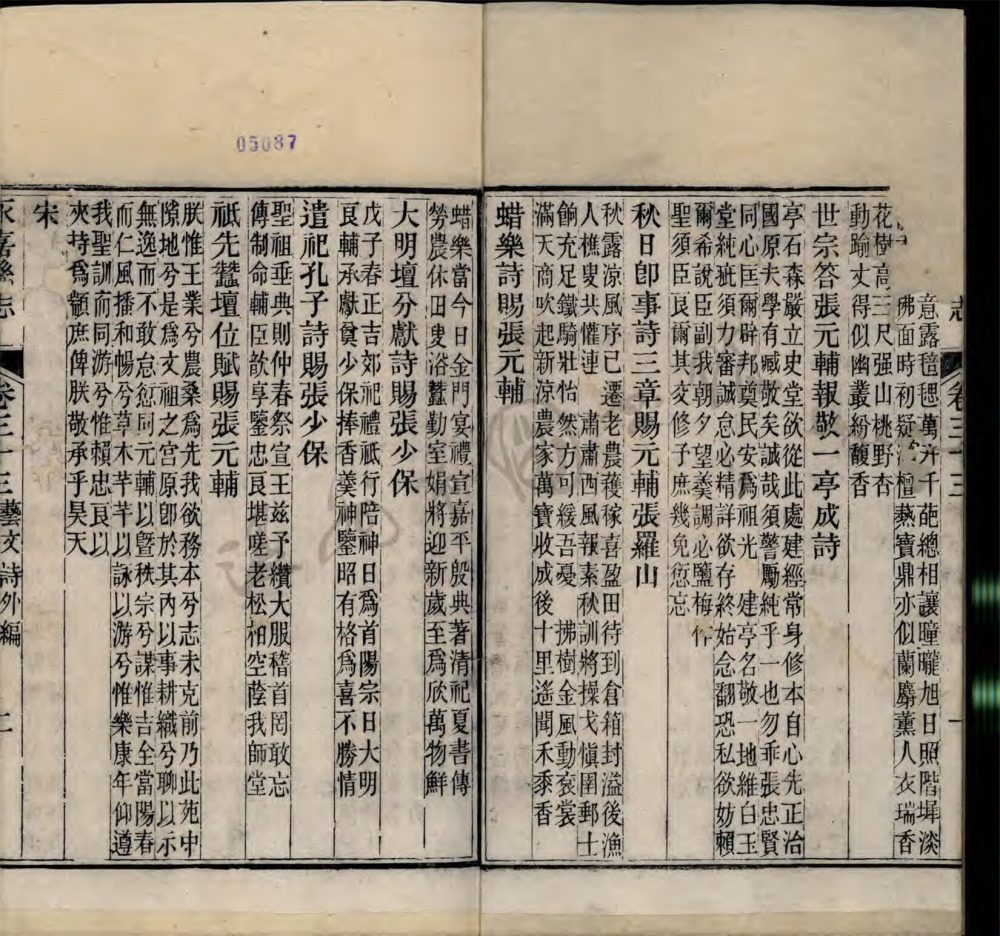 05087
志
卷三十三
一
意露氊毸萬卉千葩總相讓曈曨旭日照階墀淡
佛面時初疑檀爇寶鼎亦似蘭麝薰人衣瑞香
花樹高三尺强山桃野杏
動踰丈得似幽叢紛馥香
世宗答張元輔報敬一亭成詩
亭石森嚴立史堂欲從此處建經常身修本自心先正治
國原夫學有臧敬矣誠哉須警勵純乎一也勿乖張忠賢
同心匡爾辟邦奠民安爲祖光建亭名敬一地維白玉
堂純疵須力審誠怠必精詳欲存終始念翻恐私欲妨賴
爾希說臣副我朝夕望羹調必鹽梅作
聖須臣良爾其交修子庶幾免愆忘
秋日卽事詩三章賜元輔張羅山
秋露涼風序已遷老農穫稼喜盈田待到倉箱封溢後漁
人樵叟共懽連肅肅西風報素秋訓將操戈愼圉郵士
餉充足鐵騎壯怡然方可緩吾憂拂樹金風動衮裳
滿天商吹起新涼農家萬寶收成後十里遙聞禾黍香
蜡樂詩賜張元輔
蜡樂當今日金門宴禮宣嘉平殷典著清祀夏書傳
勞農休田叟浴蠶勤室娟將迎新歲至爲欣萬物鮮
大明壇分獻詩賜張少保
戊子春正吉郊祀禮祗行陪神日爲首陽宗日大明
良輔承獻奠少保捧香羹神鑒昭有格爲喜不勝情
遣祀孔子詩賜張少保
聖祖垂典則仲春祭宣王茲予纘大服稽首罔敢忘
傳制命輔臣歆享鑒忠良堪嗟老松柏空蔭我師堂
祗先蠶壇位賦賜張元輔
朕惟王業兮農桑爲先我欲務本兮志未克前乃此苑中
隙地兮是爲文祖之宮原卽於其內以事耕織兮聊以示
無逸而不敢怠愆同元輔以曁秩宗兮謀惟吉全當陽春
而仁風播和暢兮草木芊芊以詠以游兮惟樂康年仰遵
我聖訓而同游兮惟賴忠良以
夾持爲顓庶俾朕敬承乎昊天
宋
永嘉縣志
卷三十三藝文詩外編
二